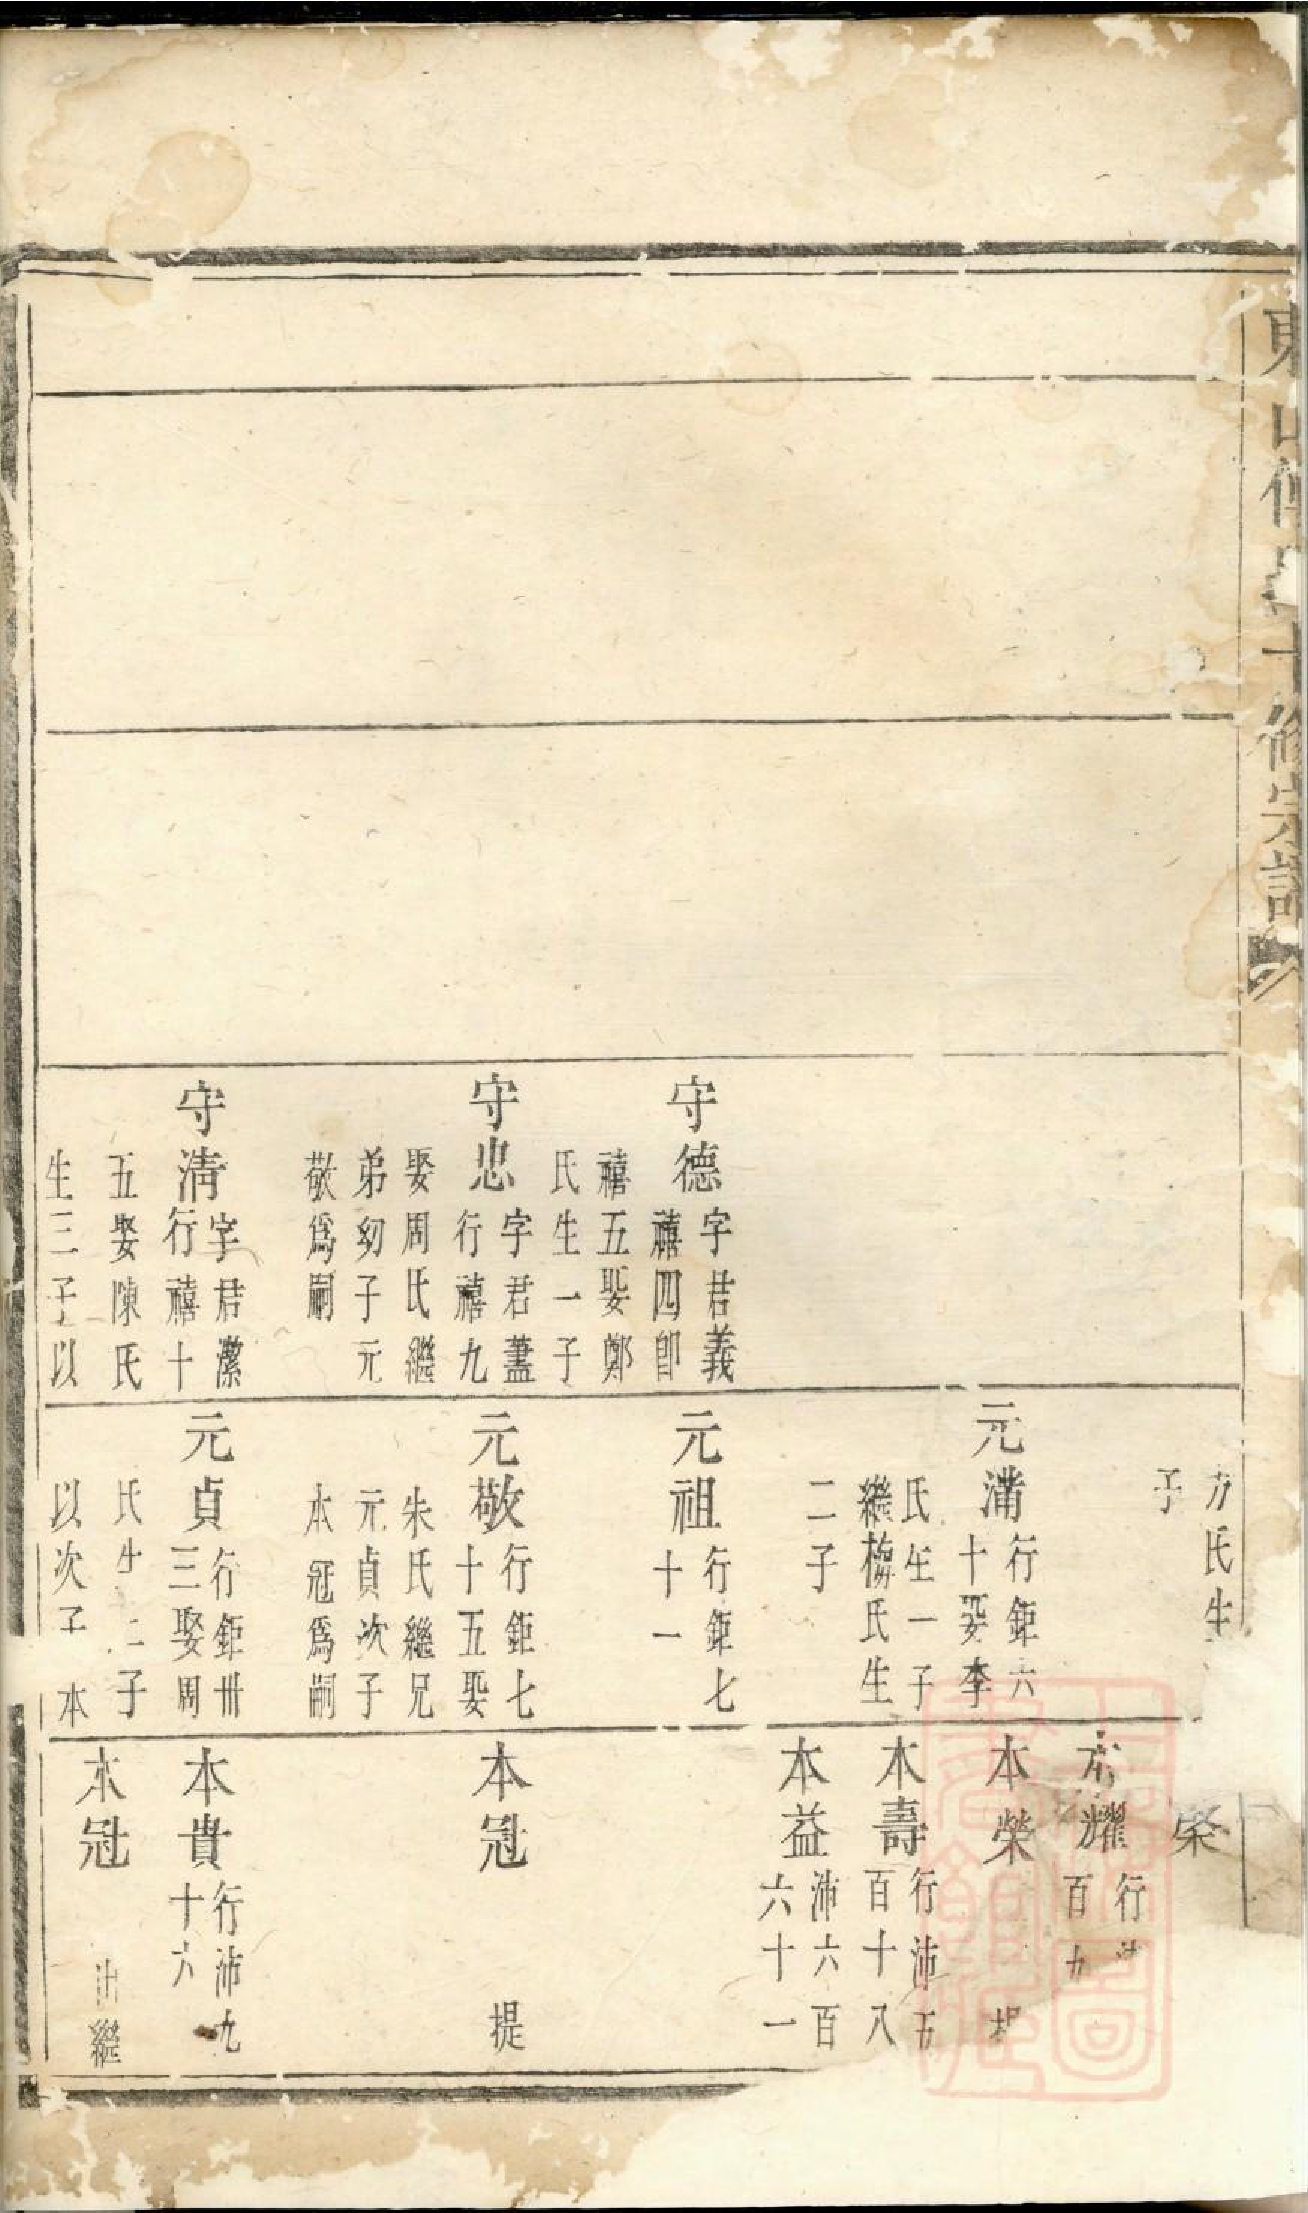 東山傅氏十修宗譜
守德
字君義
禧四卽
禧五娶鄭
氏生一子
守忠
字君藎
行禧九
娶周氏繼
弟幼子元
敬爲嗣
守淸
字君潔
行禧十
五娶陳氏
生三子以
方氏生
子
元滿
行鉅六
十娶李
氏生一子
繼梅氏生
二子
元祖
行鉅七
十一
元敬
行鉅七
十五娶
朱氏繼兄
元貞次子
本冠爲嗣
元貞
行鉅卅
三娶周
氏生二子
以次子本
榮
本耀
行
百九
本榮
提
本壽
行沛五
百十八
本益
沛六百
六十一
本冠
提
本貴
行沛九
十六
本冠
出繼